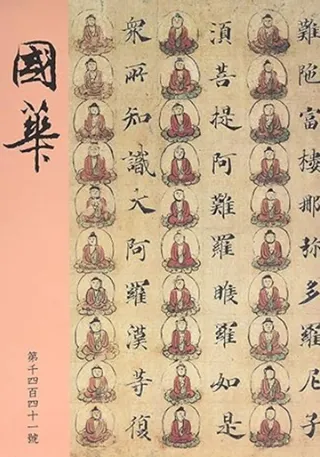 難陀富樓那弥多羅尼子
湏菩提阿難羅睺羅如是
衆所知識大阿羅漢等復
國華
第千四百四十一號